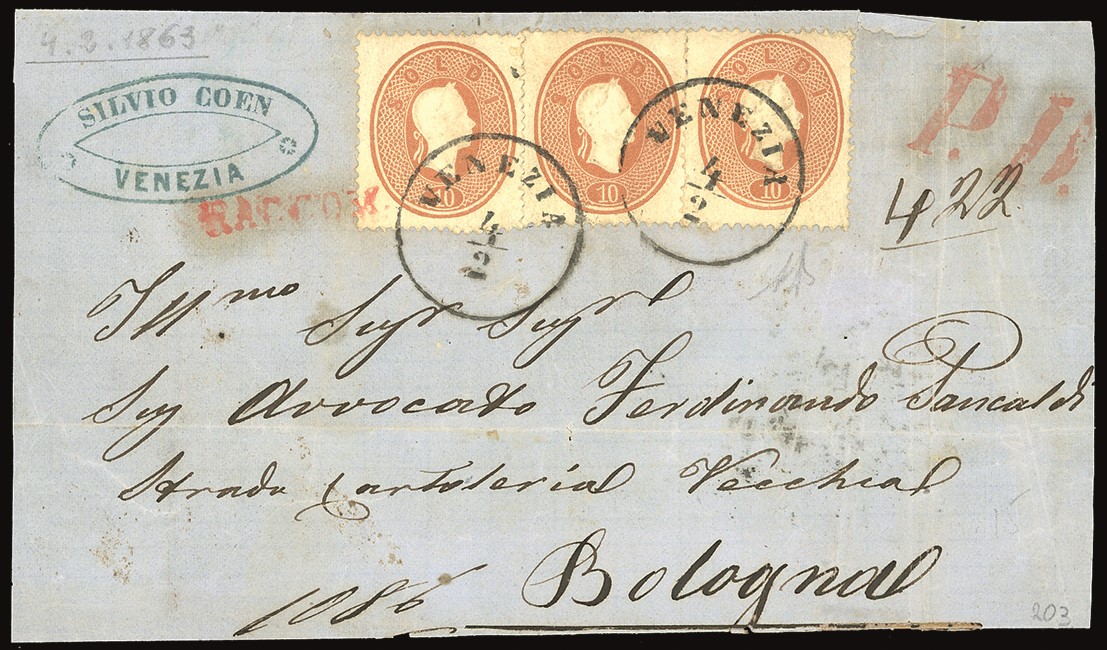 4.2.1863
SILVIO COEN
VENEZIA
RACCOM
SOLDI
10
SOLDI
10
SOLDI
10
VENEZIA
4/2
VENEZIA
4/2
P. D.
422
Ill.mo Sigr Sigr
Sig Avvocato Ferdinando Pancaldi
Strada Cartoleria Vecchia
Bologna
1086
203